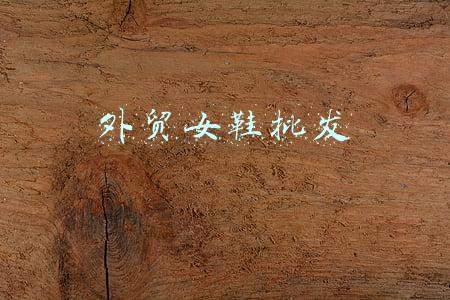 外贸女鞋批发